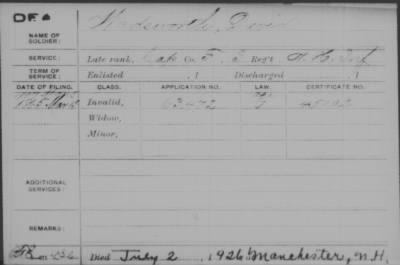 DEA
Wadsworth, David
NAME OF SOLDIER:
SERVICE: Late rank, Cap Co. F, 3 Reg't N.H. Inf
TERM OF SERVICE: Enlisted , 1 Discharged , 1
DATE OF FILING. CLASS. APPLICATION NO. LAW. CERTIFICATE NO.
1865 Mar Invalid, 63472 45192
Widow,
Minor,
ADDITIONAL SERVICES:
REMARKS:
Died July 2 , 1926 Manchester, N.H.